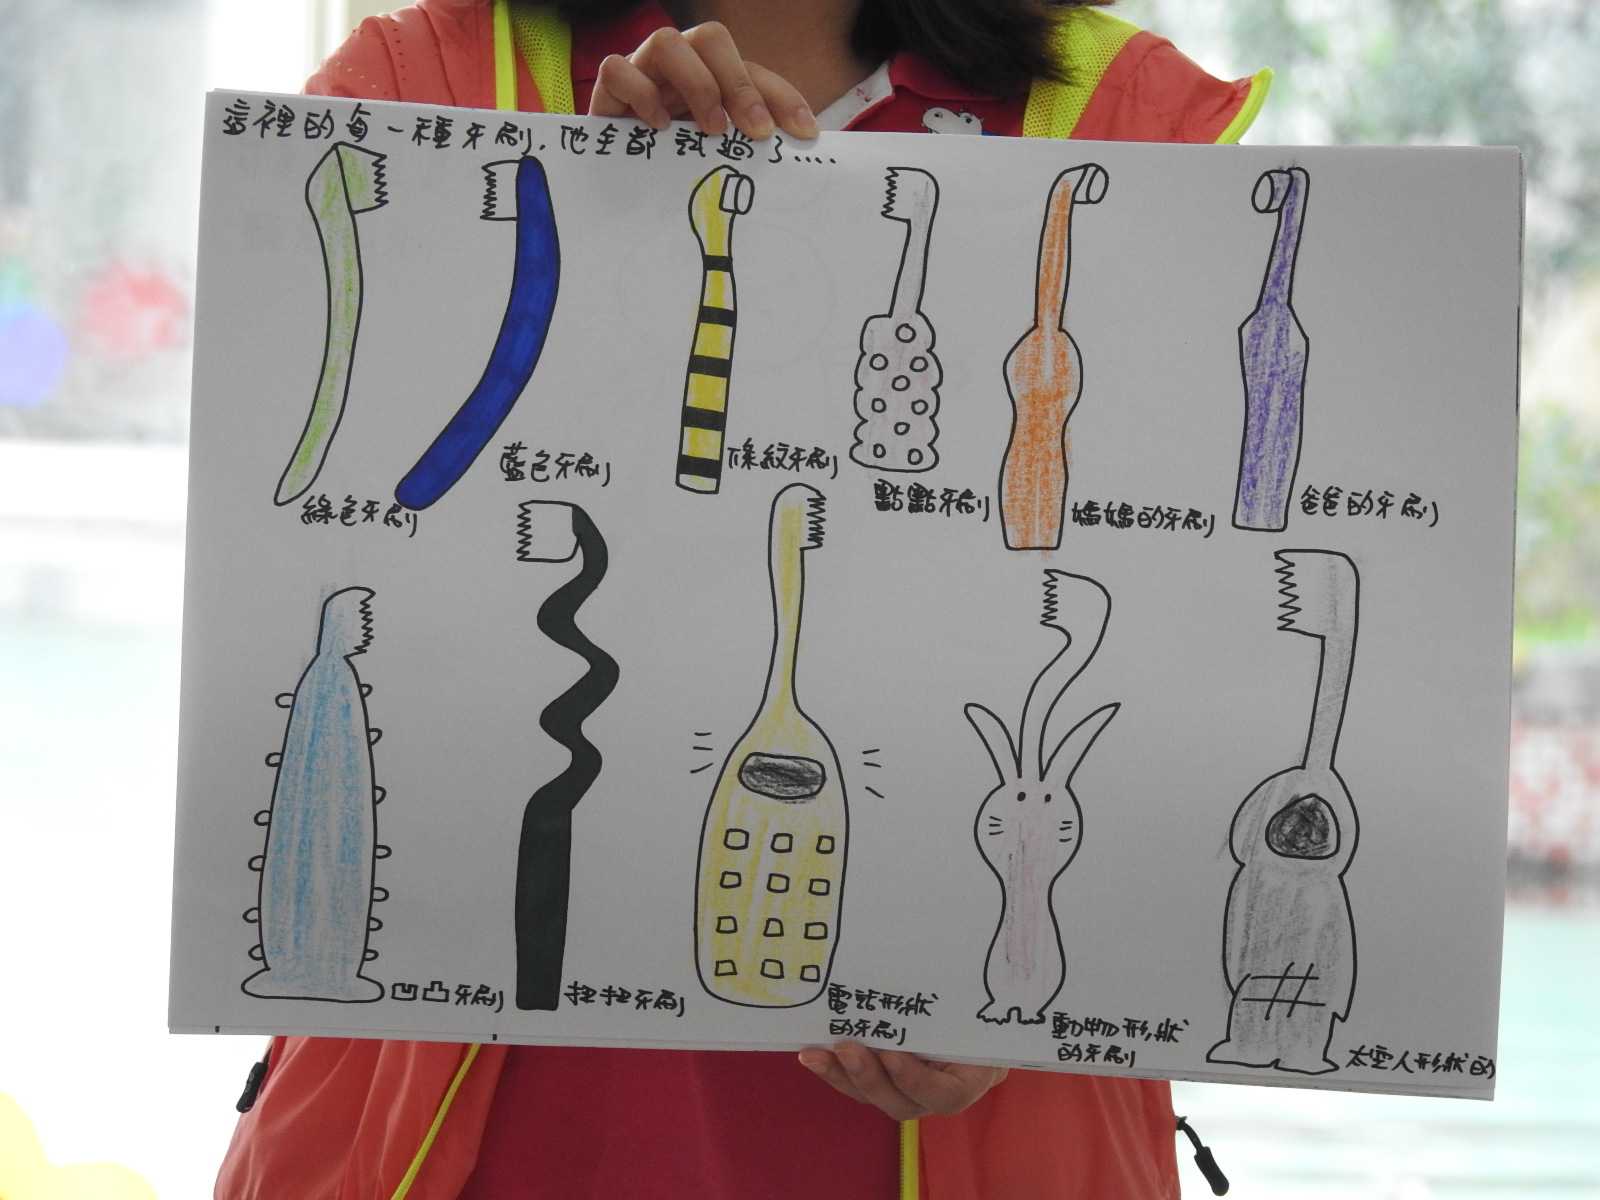 這裡的每一種牙刷，他全都試過了....
綠色牙刷
藍色牙刷
條紋牙刷
點點牙刷
媽媽的牙刷
爸爸的牙刷
凹凸牙刷
扭扭牙刷
電話形狀
的牙刷
動物形狀
的牙刷
太空人形狀的